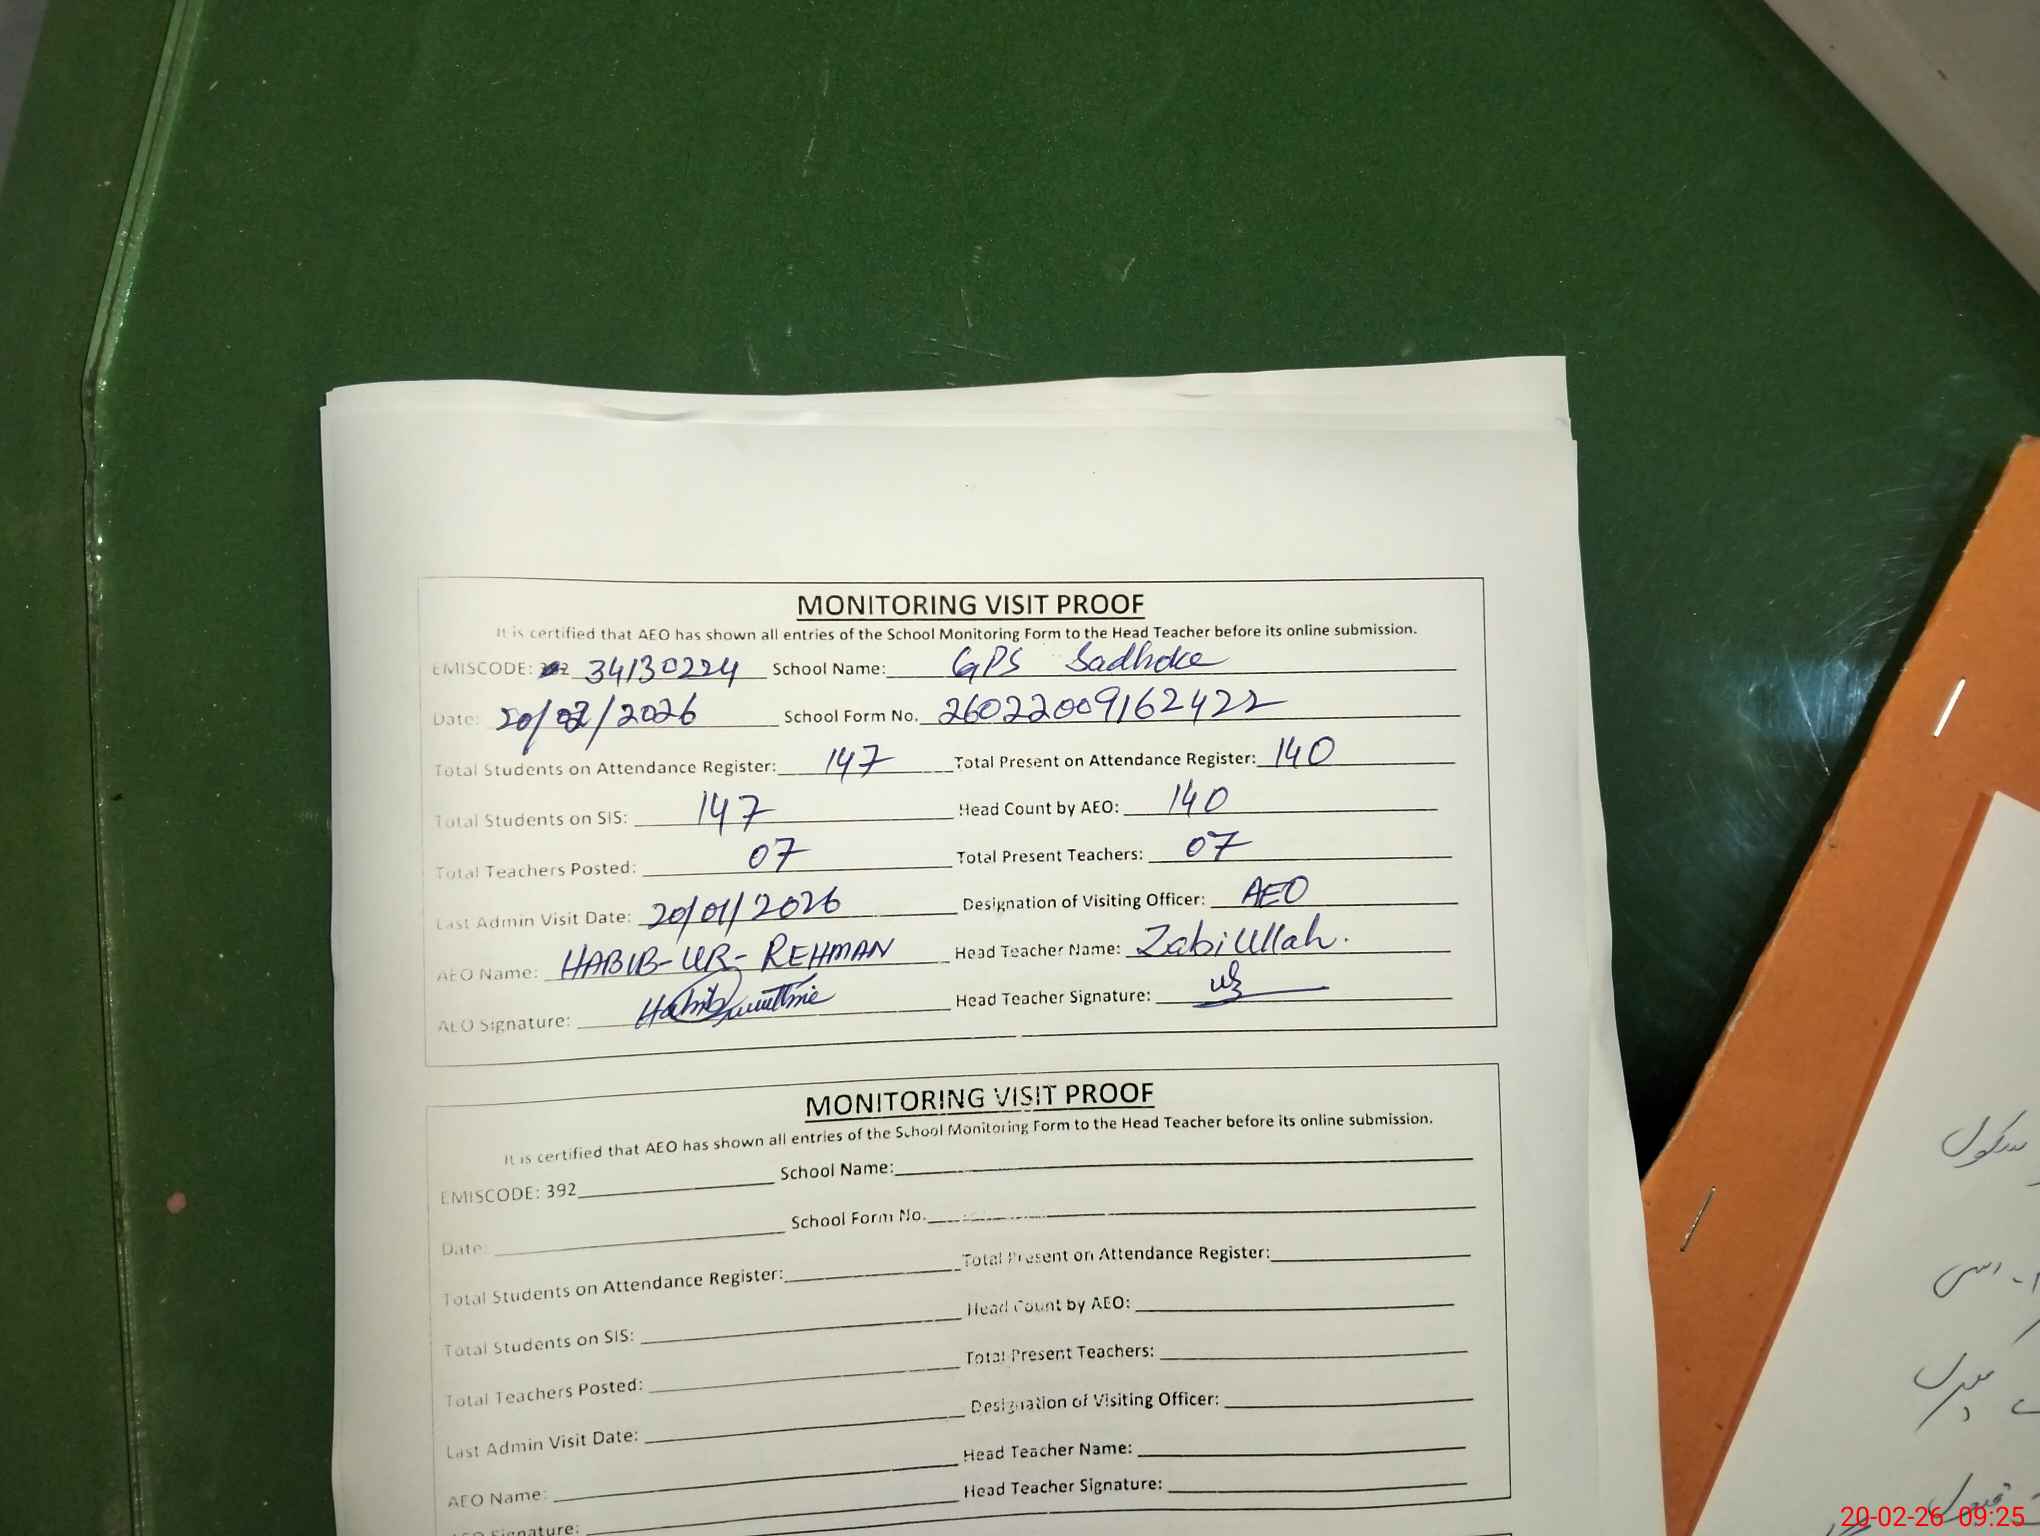 MONITORING VISIT PROOF
It is certified that AEO has shown all entries of the School Monitoring Form to the Head Teacher before its online submission.
EMISCODE: 34130224 School Name: GPS Sadhoke
Date: 20/02/2026 School Form No. 26022009162422
Total Students on Attendance Register: 147 Total Present on Attendance Register: 140
Total Students on SIS: 147 Head Count by AEO: 140
Total Teachers Posted: 07 Total Present Teachers: 07
Last Admin Visit Date: 20/01/2026 Designation of Visiting Officer: AEO
AEO Name: HABIB-UR-REHMAN Head Teacher Name: Zabi Ullah.
AEO Signature: Head Teacher Signature:
MONITORING VISIT PROOF
It is certified that AEO has shown all entries of the School Monitoring Form to the Head Teacher before its online submission.
EMISCODE: 392 School Name:
Date: School Form No.
Total Students on Attendance Register: Total Present on Attendance Register:
Total Students on SIS: Head Count by AEO:
Total Teachers Posted: Total Present Teachers:
Last Admin Visit Date: Designation of Visiting Officer:
AEO Name: Head Teacher Name:
AEO Signature: Head Teacher Signature:
سکول
20-02-26 09:25